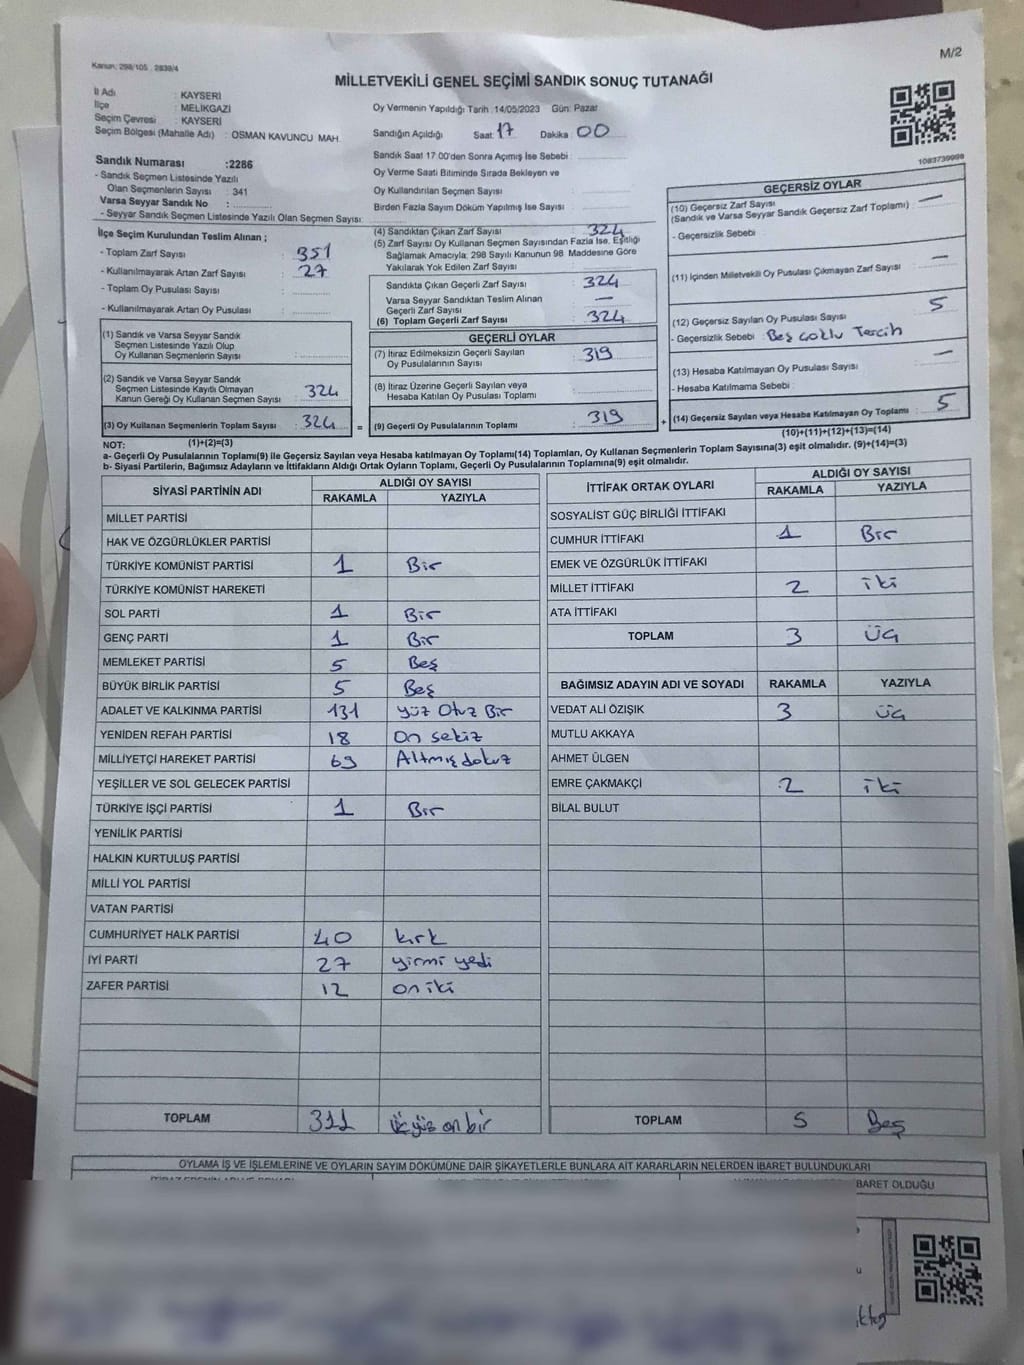 M/2
Kanun: 298/105 , 2839/4
MİLLETVEKİLİ GENEL SEÇİMİ SANDIK SONUÇ TUTANAĞI
İl Adı : KAYSERİ
İlçe : MELİKGAZİ
Seçim Çevresi : KAYSERİ
Seçim Bölgesi (Mahalle Adı) : OSMAN KAVUNCU MAH.
Oy Vermenin Yapıldığı Tarih :14/05/2023 Gün: Pazar
Sandığın Açıldığı Saat: 17 Dakika: 00
Sandık Saat 17:00'den Sonra Açımış İse Sebebi :
Oy Verme Saati Bitiminde Sırada Bekleyen ve
Oy Kullandırılan Seçmen Sayısı :
Birden Fazla Sayım Döküm Yapılmış İse Sayısı :
1083739998
Sandık Numarası :2286
- Sandık Seçmen Listesinde Yazılı
Olan Seçmenlerin Sayısı : 341
Varsa Seyyar Sandık No :
- Seyyar Sandık Seçmen Listesinde Yazılı Olan Seçmen Sayısı:
İlçe Seçim Kurulundan Teslim Alınan ;
- Toplam Zarf Sayısı : 351
- Kullanılmayarak Artan Zarf Sayısı : 27
- Toplam Oy Pusulası Sayısı :
- Kullanılmayarak Artan Oy Pusulası :
(1) Sandık ve Varsa Seyyar Sandık
Seçmen Listesinde Yazılı Olup
Oy Kullanan Seçmenlerin Sayısı :
(2) Sandık ve Varsa Seyyar Sandık
Seçmen Listesinde Kayıtlı Olmayan
Kanun Gereği Oy Kullanan Seçmen Sayısı : 324
(3) Oy Kullanan Seçmenlerin Toplam Sayısı : 324 =
(4) Sandıktan Çıkan Zarf Sayısı : 324
(5) Zarf Sayısı Oy Kullanan Seçmen Sayısından Fazla İse, Eşitliği
Sağlamak Amacıyla; 298 Sayılı Kanunun 98. Maddesine Göre
Yakılarak Yok Edilen Zarf Sayısı :
Sandıkta Çıkan Geçerli Zarf Sayısı : 324
Varsa Seyyar Sandıktan Teslim Alınan
Geçerli Zarf Sayısı : —
(6) Toplam Geçerli Zarf Sayısı : 324
GEÇERLİ OYLAR
(7) İtiraz Edilmeksizin Geçerli Sayılan
Oy Pusulalarının Sayısı : 319
(8) İtiraz Üzerine Geçerli Sayılan veya
Hesaba Katılan Oy Pusulası Toplamı :
(9) Geçerli Oy Pusulalarının Toplamı : 319 +
GEÇERSİZ OYLAR
(10) Geçersiz Zarf Sayısı
(Sandık ve Varsa Seyyar Sandık Geçersiz Zarf Toplamı) : —
- Geçersizlik Sebebi :
(11) İçinden Milletvekili Oy Pusulası Çıkmayan Zarf Sayısı : —
(12) Geçersiz Sayılan Oy Pusulası Sayısı : 5
- Geçersizlik Sebebi : Beş çoklu Tercih
(13) Hesaba Katılmayan Oy Pusulası Sayısı : —
- Hesaba Katılmama Sebebi :
(14) Geçersiz Sayılan veya Hesaba Katılmayan Oy Toplamı : 5
NOT: (1)+(2)=(3) (10)+(11)+(12)+(13)=(14)
a- Geçerli Oy Pusulalarının Toplamı(9) ile Geçersiz Sayılan veya Hesaba katılmayan Oy Toplamı(14) Toplamları, Oy Kullanan Seçmenlerin Toplam Sayısına(3) eşit olmalıdır. (9)+(14)=(3)
b- Siyasi Partilerin, Bağımsız Adayların ve İttifakların Aldığı Ortak Oyların Toplamı, Geçerli Oy Pusulalarının Toplamına(9) eşit olmalıdır.
SİYASİ PARTİNİN ADI ALDIĞI OY SAYISI
RAKAMLA YAZIYLA
MİLLET PARTİSİ
HAK VE ÖZGÜRLÜKLER PARTİSİ
TÜRKİYE KOMÜNİST PARTİSİ 1 Bir
TÜRKİYE KOMÜNİST HAREKETİ
SOL PARTİ 1 Bir
GENÇ PARTİ 1 Bir
MEMLEKET PARTİSİ 5 Beş
BÜYÜK BİRLİK PARTİSİ 5 Beş
ADALET VE KALKINMA PARTİSİ 131 yüz Otuz Bir
YENİDEN REFAH PARTİSİ 18 On sekiz
MİLLİYETÇİ HAREKET PARTİSİ 69 Altmış dokuz
YEŞİLLER VE SOL GELECEK PARTİSİ
TÜRKİYE İŞÇİ PARTİSİ 1 Bir
YENİLİK PARTİSİ
HALKIN KURTULUŞ PARTİSİ
MİLLİ YOL PARTİSİ
VATAN PARTİSİ
CUMHURİYET HALK PARTİSİ 40 kırk
İYİ PARTİ 27 yirmi yedi
ZAFER PARTİSİ 12 on iki
TOPLAM 311 üçyüs on bir
İTTİFAK ORTAK OYLARI ALDIĞI OY SAYISI
RAKAMLA YAZIYLA
SOSYALİST GÜÇ BİRLİĞİ İTTİFAKI
CUMHUR İTTİFAKI 1 Bir
EMEK VE ÖZGÜRLÜK İTTİFAKI
MİLLET İTTİFAKI 2 iki
ATA İTTİFAKI
TOPLAM 3 üç
BAĞIMSIZ ADAYIN ADI VE SOYADI RAKAMLA YAZIYLA
VEDAT ALİ ÖZIŞIK 3 üç
MUTLU AKKAYA
AHMET ÜLGEN
EMRE ÇAKMAKÇİ 2 iki
BİLAL BULUT
TOPLAM 5 Beş
OYLAMA İŞ VE İŞLEMLERİNE VE OYLARIN SAYIM DÖKÜMÜNE DAİR ŞİKAYETLERLE BUNLARA AİT KARARLARIN NELERDEN İBARET BULUNDUKLARI
BARET OLDUĞU